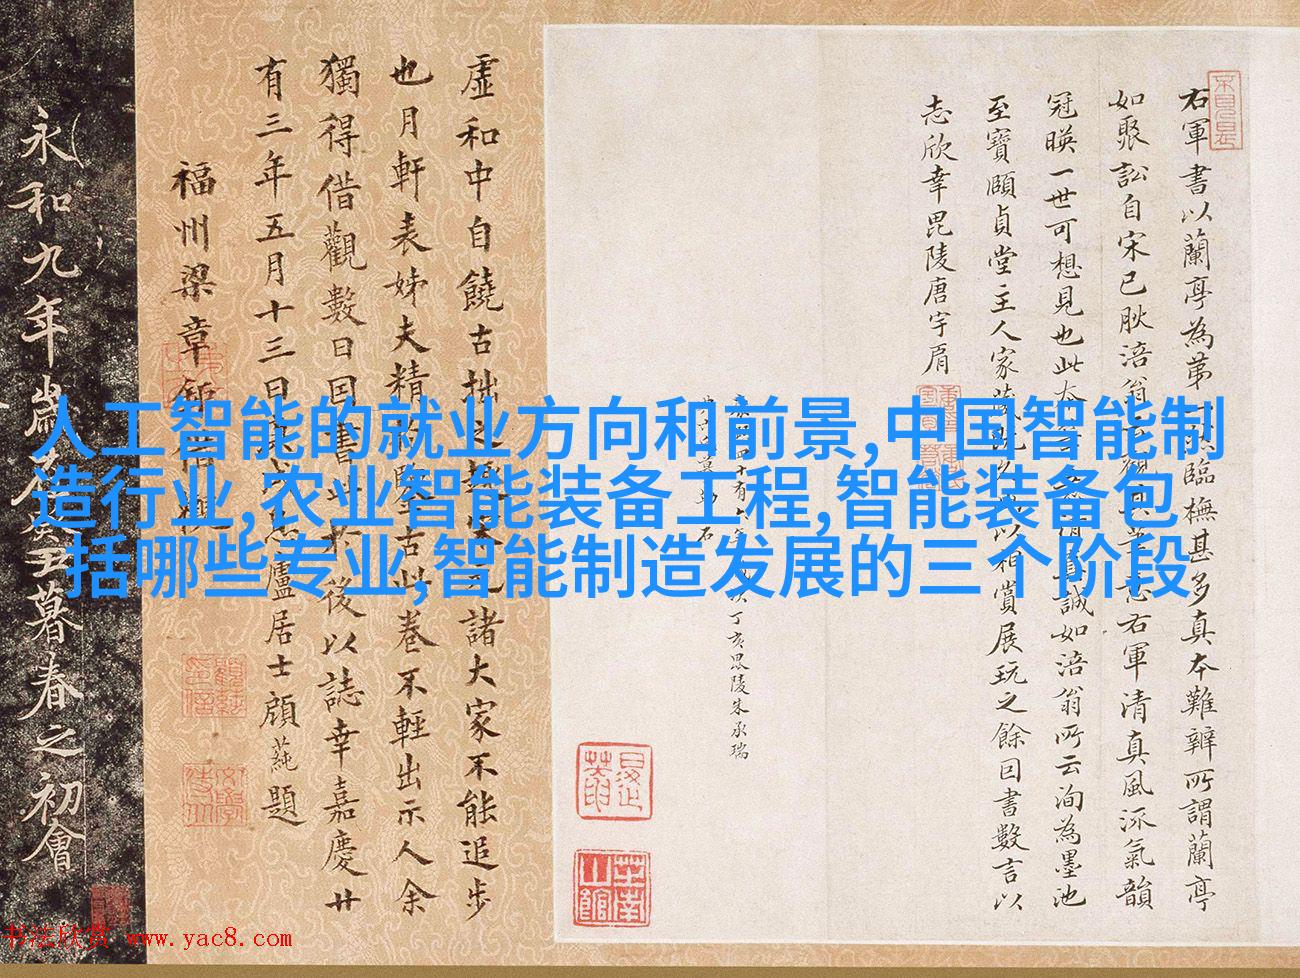 右軍書以蘭亭為苐一
臨橅甚多真本難辨所謂蘭亭
如聚訟自宋已肰涪翁
右軍清真風流氣韻
冠暎一世可想見也此
誠如涪翁所云洵為墨池
至寶頤貞堂主人家藏
以相賞展玩之餘因書數言以
志欣幸毘陵唐宇肩
丁亥毘陵朱承瑞
虛和中自饒古拙之
諸大家不能追步
也月軒表姊夫精
古此卷不輕出示人余
獨得借觀數日因書此
後以誌幸嘉慶廿
有三年五月十三日
盧居士顧蒓題
福州梁章鉅
永和九年歲
暮春之初會
人工智能的就业方向和前景,中国智能制
造行业,农业智能装备工程,智能装备包
括哪些专业,智能制造发展的三个阶段
书法欣赏 www.yac8.com